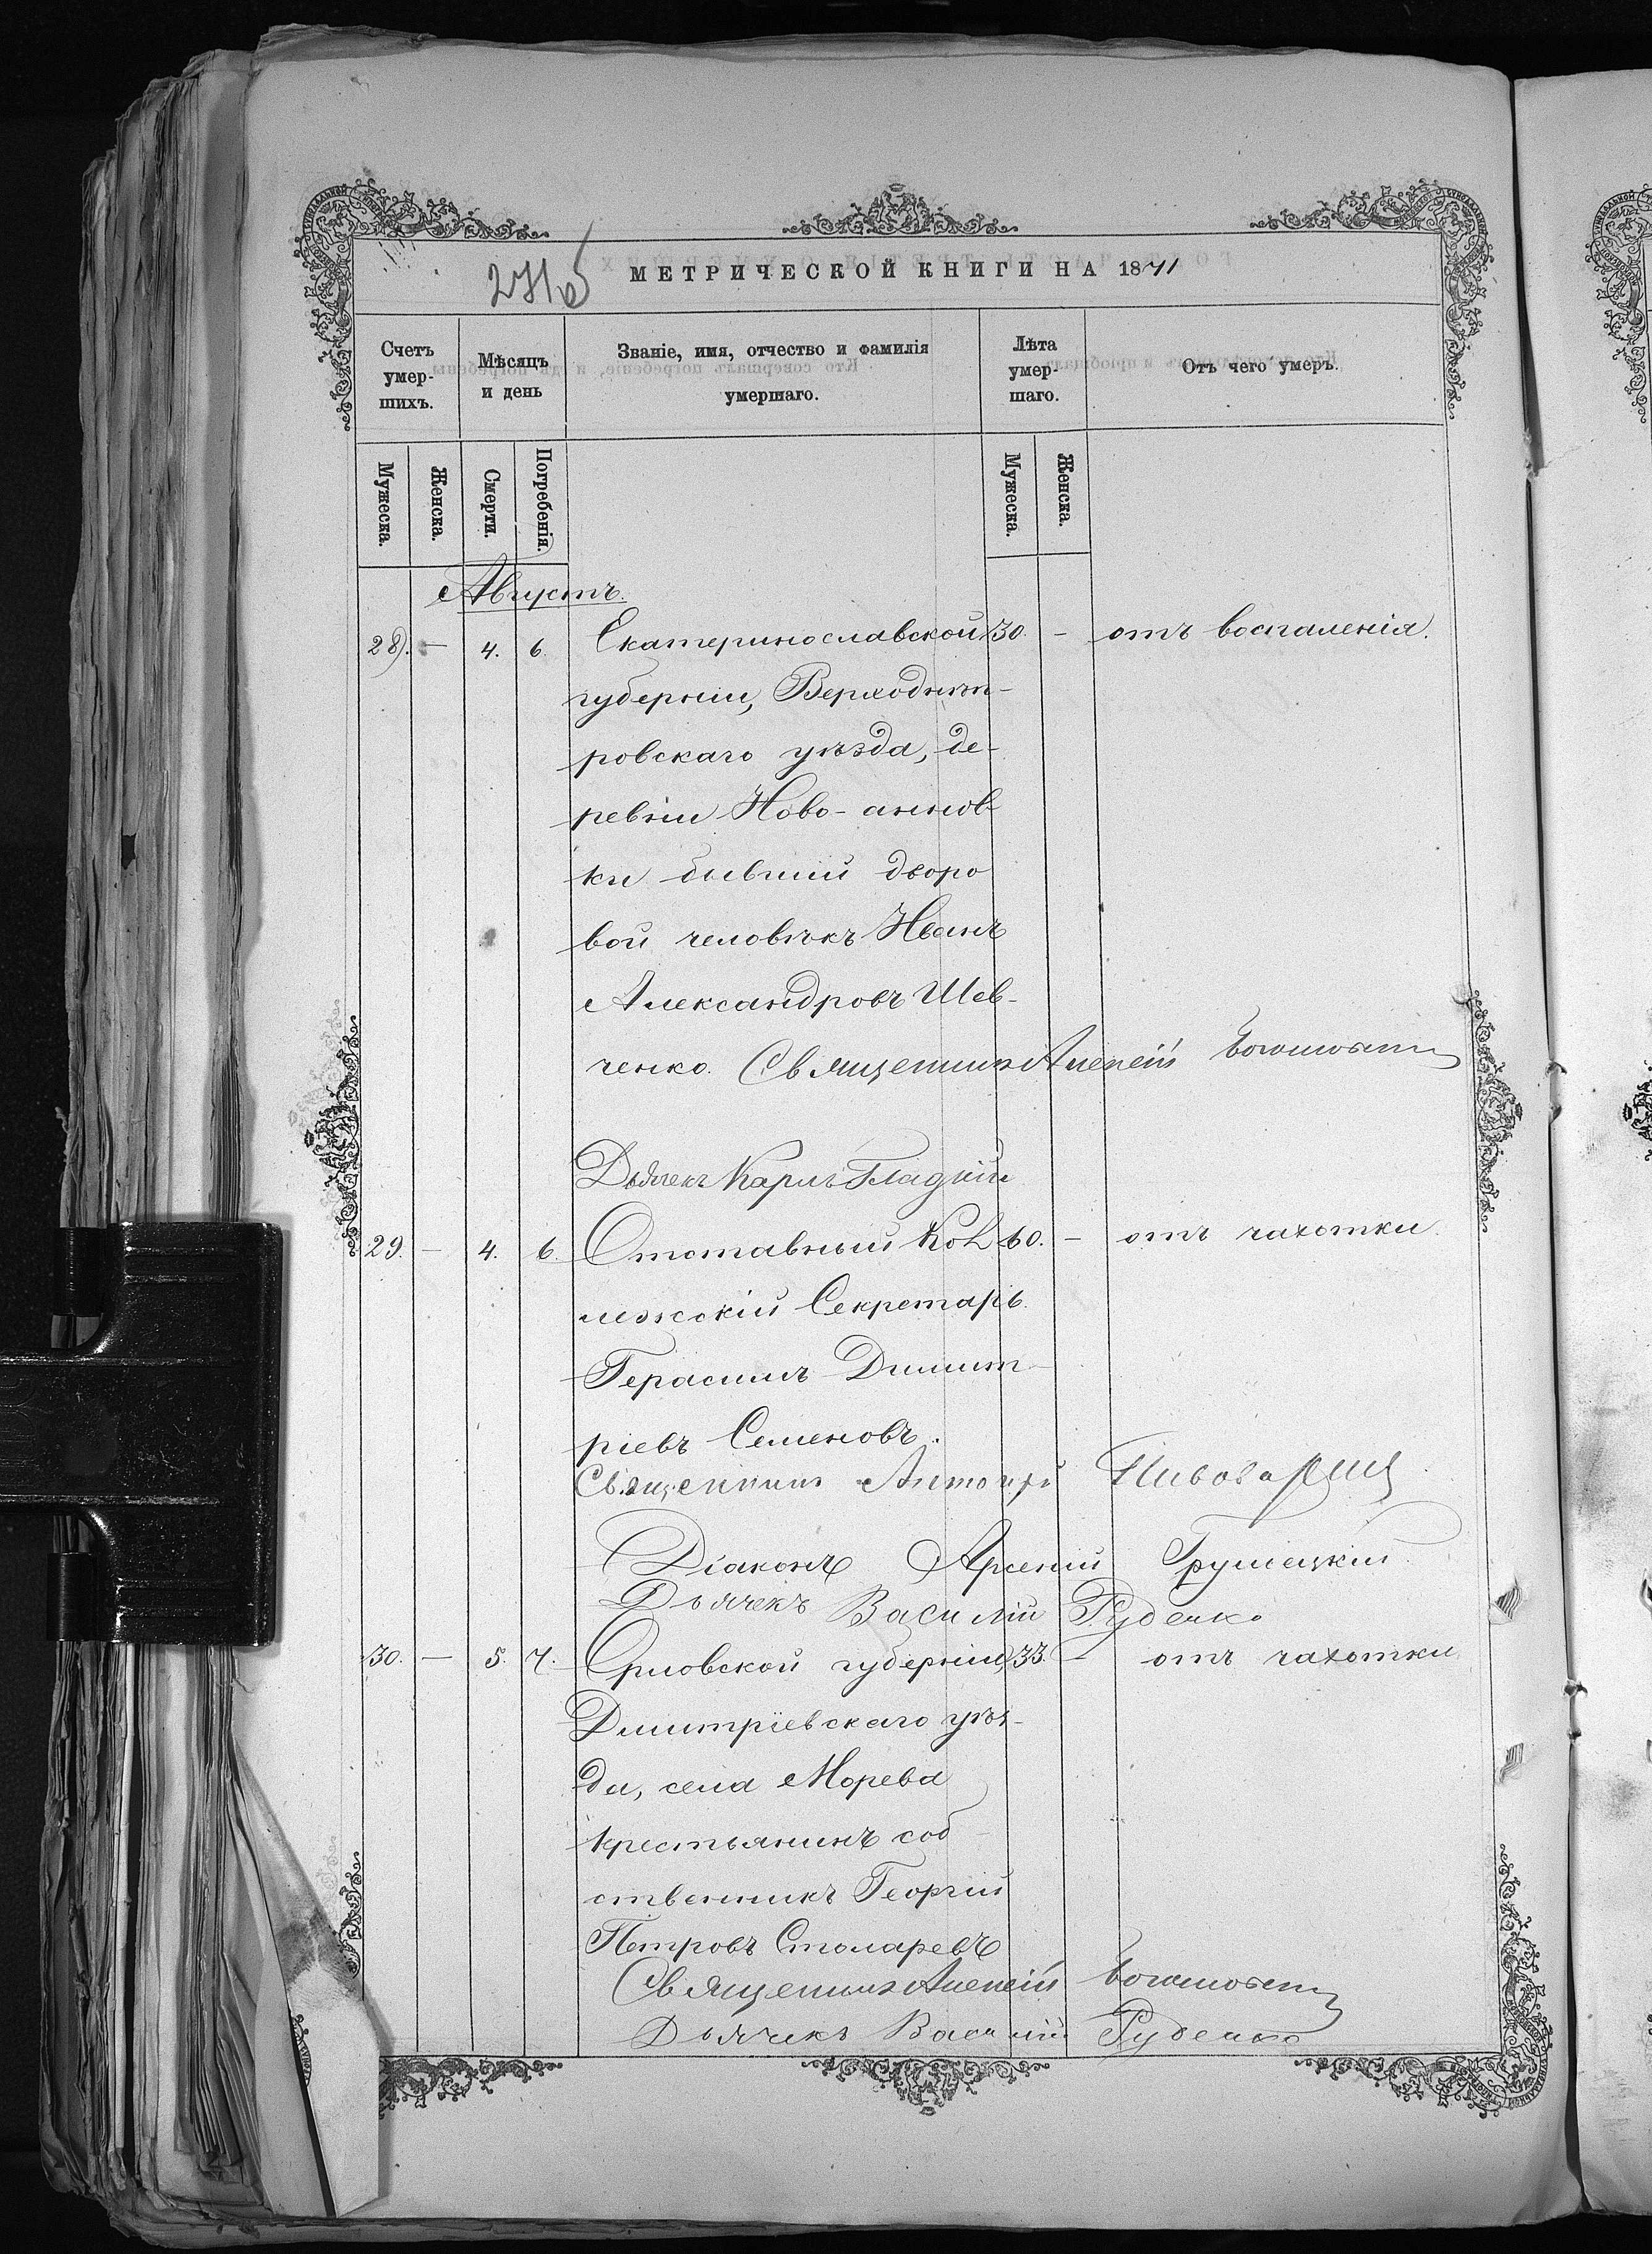 МЕТРИЧЕСКОЙ КНИГИ НА 1871
Счетъ умер-шихъ.
Мѣсяцъ и день
Званіе, имя, отчество и фамилія умершаго.
Лѣта умер-шаго.
Отъ чего умеръ.
Мужеска.
Женска.
Смерти.
Погребенія.
Мужеска.
Женска.
Августъ.
28). — 4. 6. Екатеринославской 30. — отъ воспаленія.
губерніи, Верходнѣп-
ровскаго уѣзда, де-
ревніи Ново-аннов
ки бывшій дворо
вой человѣкъ Иванъ
Александровъ Шев-
ченко. Священникъ Алексій
Дьячекъ Карпъ Гладкій
29. — 4. 6. Отставный Кол 60. — отъ чахотки.
лежскій Секретарь
Герасимъ Димит-
ріевъ Семеновъ.
Священникъ Антоній
Діаконъ Арсеній
Дьячекъ Василій Руденко
30. — 5. 7. Орловской губерніи, 33. — отъ чахотки
Дмитріевскаго уѣз-
да, села Морева
крестьянинъ соб
ственникъ Георгій
Петровъ Столаревъ
Священникъ Алексій
Дьячекъ Василій Руденко